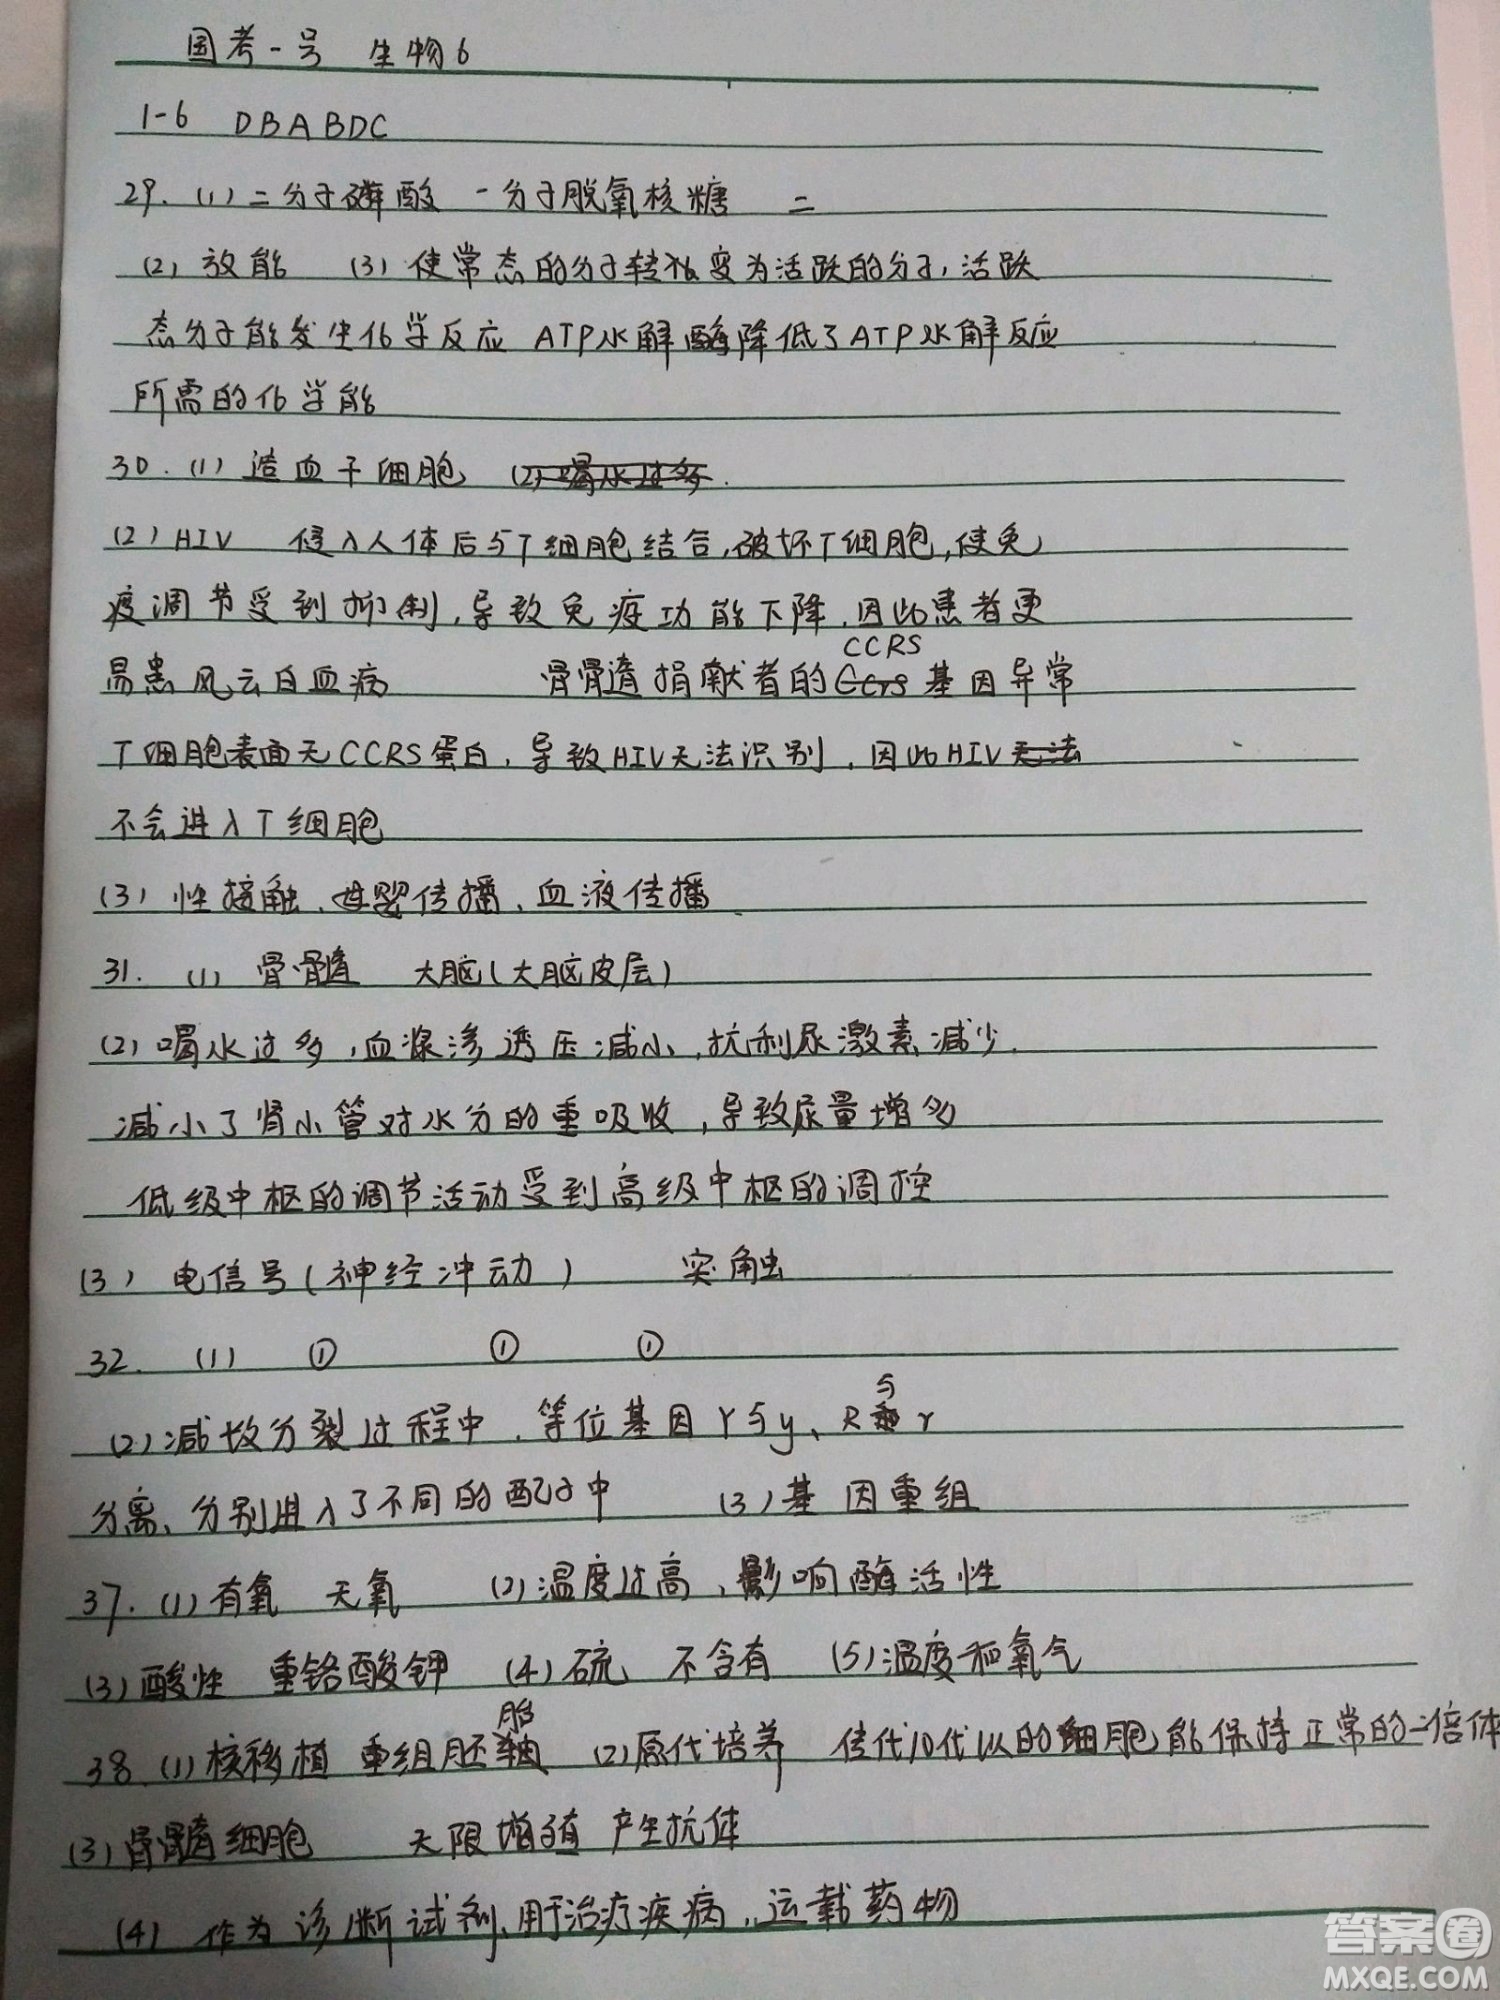 国考一号 生物6
1-6 DBABDC
29.(1)二分子磷酸 一分子脱氧核糖 二
(2)放能 (3)使常态的分子转变为活跃的分子,活跃
态分子能发生化学反应 ATP水解酶降低了ATP水解反应
所需的化学能
30.(1)造血干细胞 (2)喝水过多.
(2)HIV 侵入人体后与T细胞结合,破坏T细胞,使免
疫调节受到抑制,导致免疫功能下降,因此患者更
CCRS
易患风云白血病 骨骨髓捐献者的Ccrs基因异常
T细胞表面无CCRS蛋白,导致HIV无法识别,因此HIV无法
不会进入T细胞
(3)性接触、母婴传播、血液传播
31.(1)骨髓 大脑(大脑皮层)
(2)喝水过多,血浆渗透压减小,抗利尿激素减少.
减小了肾小管对水分的重吸收,导致尿量增多
低级中枢的调节活动受到高级中枢的调控
(3)电信号(神经冲动) 突触
32.(1) ① ① ①
(2)减数分裂过程中,等位基因Y与y、R与r
分离、分别进入了不同的配子中 (3)基因重组
37.(1)有氧 无氧 (2)温度过高,影响酶活性
(3)酸性 重铬酸钾 (4)硫 不含有 (5)温度和氧气
38.(1)核移植 重组胚胎 (2)原代培养 传代10代以的细胞能保持正常的二倍体
(3)骨髓细胞 无限增殖 产生抗体
(4)作为诊断试剂、用于治疗疾病,运载药物
答案圈
MXQE.COM